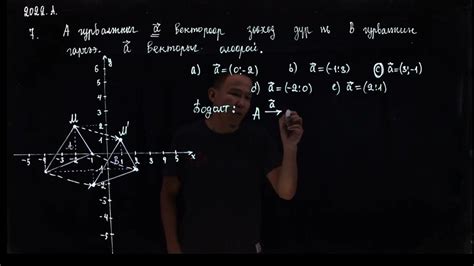 2022. A.
7. A гурвалжинг a⃗ вектороор зөөхөд дүр нь B гурвалжин
гарчээ. a⃗ векторыг олоорой.
a) a⃗=(0;-2) b) a⃗=(-1;3) c) a⃗=(3;-1)
d) a⃗=(-2;0) e) a⃗=(2;1)
Бодолт: A a⃗→
y
6
5
4
3
2
1
M M'
A B
-5 -4 -3 -2 -1 1 2 3 4 5 x
-1
-2
-3
-4
-5